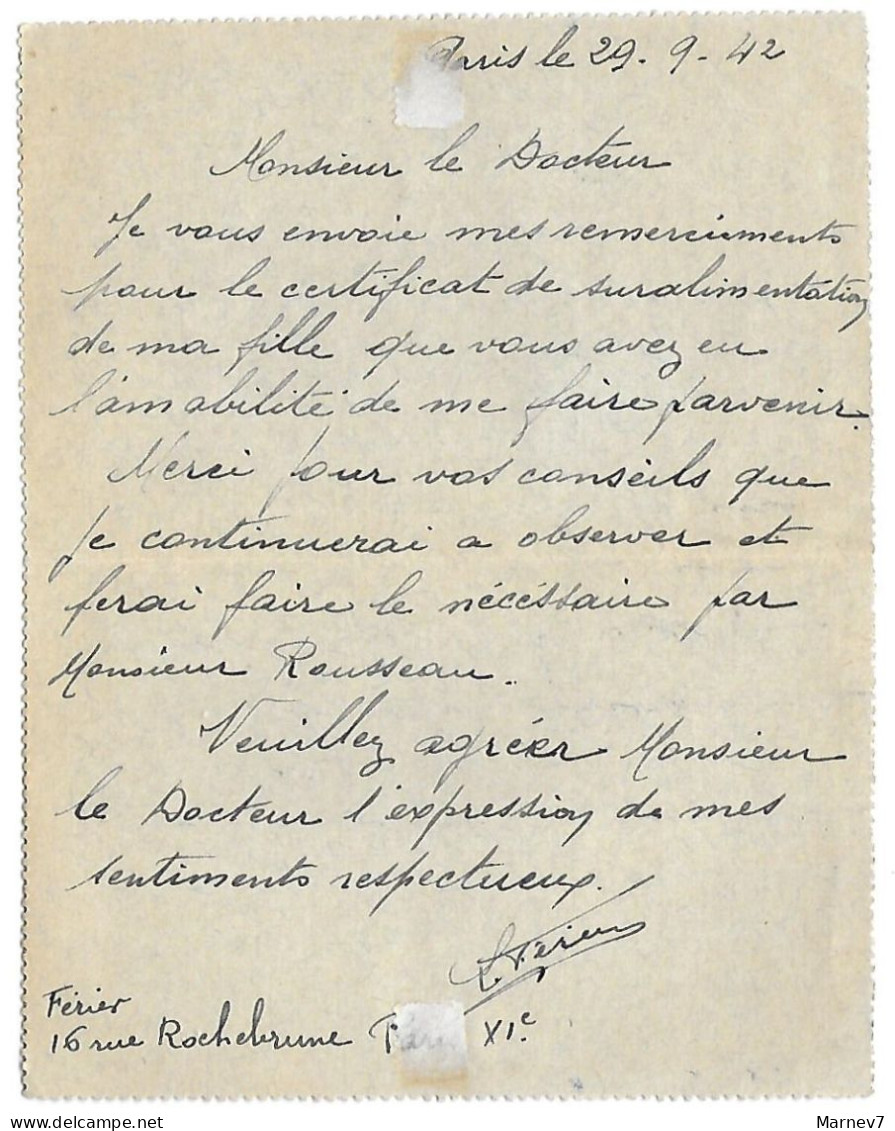 Paris le 29. 9. 42
Monsieur le Docteur
Je vous envoie mes remerciements
pour le certificat de suralimentation
de ma fille que vous avez eu
l'amabilité de me faire parvenir.
Merci pour vos conseils que
je continuerai a observer et
ferai faire le nécéssaire par
Monsieur Rousseau.
Veuillez agréer Monsieur
le Docteur l'expression de mes
sentiments respectueux.
Férier
16 rue Rochebrune Paris XIe.
Marnev7